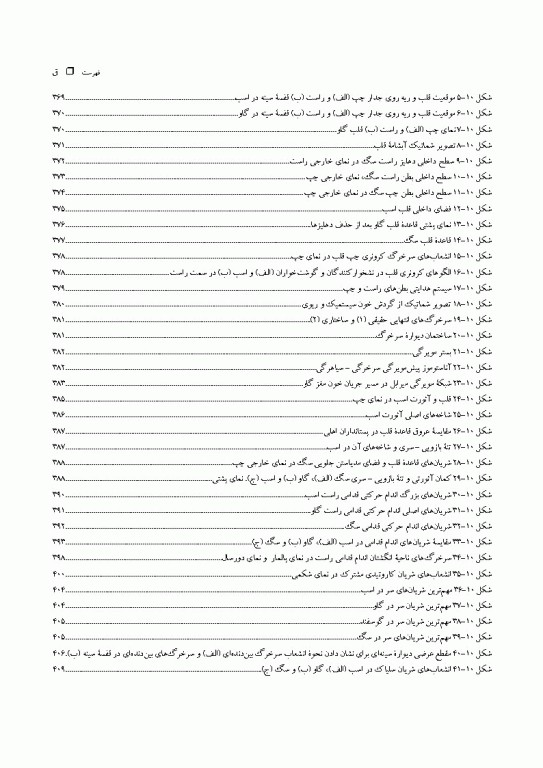 فهرست ❐ ق
شکل ۱۰-۵ موقعیت قلب و ریه روی جدار چپ (الف) و راست (ب) قفسۀ سینه در اسب ۳۶۹
شکل ۱۰-۶ موقعیت قلب و ریه روی جدار چپ (الف) و راست (ب) قفسۀ سینه در گاو ۳۷۰
شکل ۱۰-۷ نمای چپ (الف) و راست (ب) قلب گاو ۳۷۰
شکل ۱۰-۸ تصویر شماتیک آبشامۀ قلب ۳۷۱
شکل ۱۰-۹ سطح داخلی دهلیز راست سگ در نمای خارجی راست ۳۷۲
شکل ۱۰-۱۰ سطح داخلی بطن راست سگ، نمای خارجی چپ ۳۷۳
شکل ۱۰-۱۱ سطح داخلی بطن چپ سگ در نمای خارجی چپ ۳۷۴
شکل ۱۰-۱۲ فضای داخلی قلب اسب ۳۷۵
شکل ۱۰-۱۳ نمای پشتی قاعدۀ قلب گاو بعد از حذف دهلیزها ۳۷۶
شکل ۱۰-۱۴ قاعدۀ قلب سگ ۳۷۷
شکل ۱۰-۱۵ انشعاب‌های سرخرگ کرونری چپ قلب در نمای چپ ۳۷۸
شکل ۱۰-۱۶ الگوهای کرونری قلب در نشخوارکنندگان و گوشت‌خواران (الف) و اسب (ب) در سمت راست ۳۷۸
شکل ۱۰-۱۷ سیستم هدایتی بطن‌های راست و چپ ۳۷۹
شکل ۱۰-۱۸ تصویر شماتیک از گردش خون سیستمیک و ریوی ۳۸۰
شکل ۱۰-۱۹ سرخرگ‌های انتهایی حقیقی (۱) و ساختاری (۲) ۳۸۱
شکل ۱۰-۲۰ ساختمان دیوارۀ سرخرگ ۳۸۱
شکل ۱۰-۲۱ بستر مویرگی ۳۸۲
شکل ۱۰-۲۲ آناستوموز پیش‌مویرگی سرخرگی - سیاهرگی ۳۸۲
شکل ۱۰-۲۳ شبکۀ مویرگی میرابل در مسیر جریان خون مغز گاو ۳۸۳
شکل ۱۰-۲۴ قلب و آئورت اسب در نمای چپ ۳۸۵
شکل ۱۰-۲۵ شاخه‌های اصلی آئورت اسب ۳۸۶
شکل ۱۰-۲۶ مقایسۀ عروق قاعدۀ قلب در پستانداران اهلی ۳۸۷
شکل ۱۰-۲۷ تنۀ بازویی - سری و شاخه‌های آن در اسب ۳۸۷
شکل ۱۰-۲۸ شریان‌های قاعدۀ قلب و فضای مدیاستن جلویی سگ در نمای خارجی چپ ۳۸۸
شکل ۱۰-۲۹ کمان آئورتی و تنۀ بازویی - سری سگ (الف)، گاو (ب) و اسب (ج). نمای پشتی ۳۸۸
شکل ۱۰-۳۰ شریان‌های بزرگ اندام حرکتی قدامی راست اسب ۳۹۰
شکل ۱۰-۳۱ شریان‌های اصلی اندام حرکتی قدامی راست گاو ۳۹۱
شکل ۱۰-۳۲ شریان‌های اندام حرکتی قدامی سگ ۳۹۲
شکل ۱۰-۳۳ مقایسۀ شریان‌های اندام قدامی در اسب (الف)، گاو (ب) و سگ (ج) ۳۹۳
شکل ۱۰-۳۴ سرخرگ‌های ناحیۀ انگشتان اندام قدامی راست در نمای پالمار و نمای دورسال ۳۹۸
شکل ۱۰-۳۵ انشعاب‌های شریان کاروتیدی مشترک در نمای شکمی ۴۰۰
شکل ۱۰-۳۶ مهم‌ترین شریان‌های سر در اسب ۴۰۴
شکل ۱۰-۳۷ مهم‌ترین شریان سر در گاو ۴۰۴
شکل ۱۰-۳۸ مهم‌ترین شریان سر در گوسفند ۴۰۵
شکل ۱۰-۳۹ مهم‌ترین شریان‌های سر در سگ ۴۰۵
شکل ۱۰-۴۰ مقطع عرضی دیوارۀ سینه‌ای برای نشان دادن نحوۀ انشعاب سرخرگ بین‌دنده‌ای (الف) و سرخرگ‌های بین‌دنده‌ای در قفسۀ سینه (ب) ۴۰۶
شکل ۱۰-۴۱ انشعاب‌های شریان سلیاک در اسب (الف)، گاو (ب) و سگ (ج) ۴۰۹